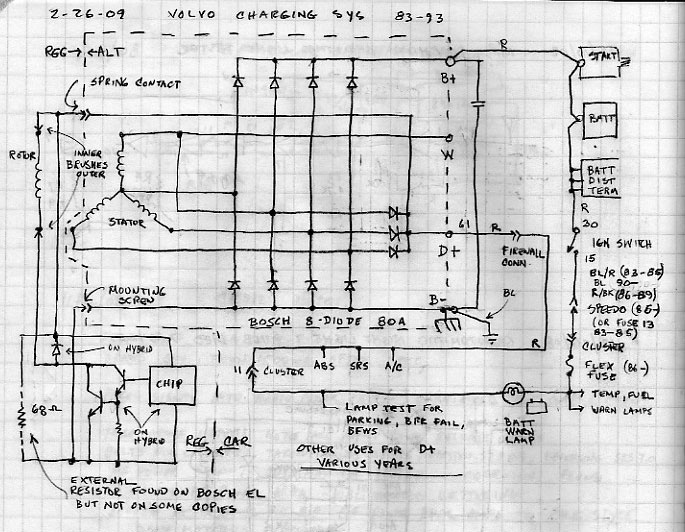 2-26-09 VOLVO CHARGING SYS 83-93
REG ALT
SPRING CONTACT
B+
R
START
BATT
BATT
DIST
TERM
R
30
W
ROTOR
INNER
BRUSHES
OUTER
STATOR
61
R
D+
FIREWALL
CONN.
IGN SWITCH
15
BL/R (83-85)
BL 90-
R/BK (86-89)
SPEEDO (85-)
(OR FUSE 13
83-85)
CLUSTER
MOUNTING
SCREW
B-
BL
BOSCH 8-DIODE 80A
R
FLEX
FUSE (86-)
ON HYBRID
CHIP
68Ω
ON
HYBRID
REG CAR
11
CLUSTER
ABS SRS A/C
TEMP, FUEL
WARN LAMPS
BATT
WARN
LAMP
LAMP TEST FOR
PARKING, BRK FAIL,
BFWS
OTHER USES FOR D+
VARIOUS YEARS
EXTERNAL
RESISTOR FOUND ON BOSCH EL
BUT NOT ON SOME COPIES